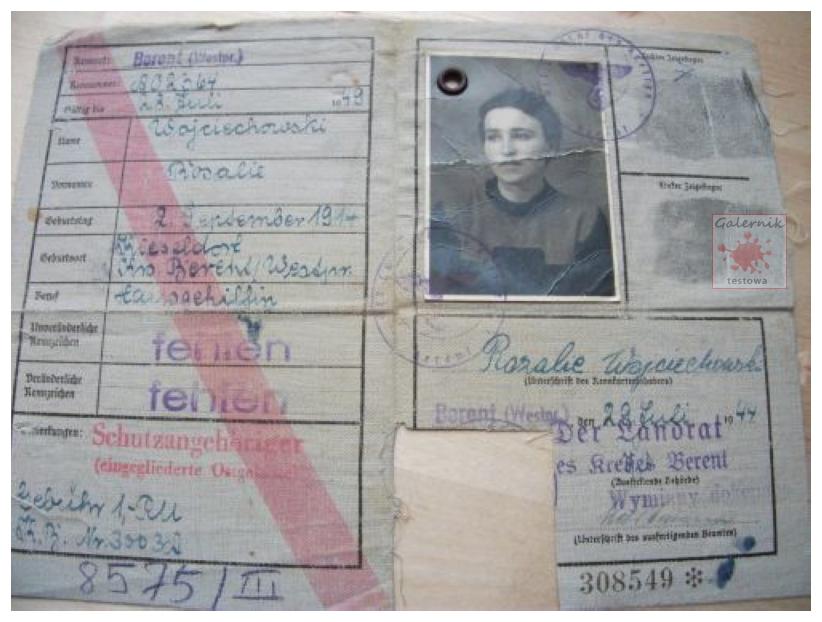 Kennort: Berent (Westpr.)
Kennummer: 802564
Gültig bis 28. Juli 1949
Name Wojciechowski
Vornamen Rosalie
Geburtstag 2. September 1914
Geburtsort
Krs Berent/Westpr.
Beruf Hausgehilfin
Unveränderliche
Kennzeichen fehlen
Veränderliche
Kennzeichen fehlen
Bemerkungen: Schutzangehöriger
(eingegliederte Ostgebiete)
Gebühr 1,- RM
8575/III
Rechter Zeigefinger
Linker Zeigefinger
Galernik
testowa
Berent
Rozalie Wojciechowski
(Unterschrift des Kennkarteninhabers)
Berent (Westpr.) den 28. Juli 1944
Der Landrat
des Kreises Berent
(Ausstellende Behörde)
Wymiany
(Unterschrift des ausfertigenden Beamten)
308549 *